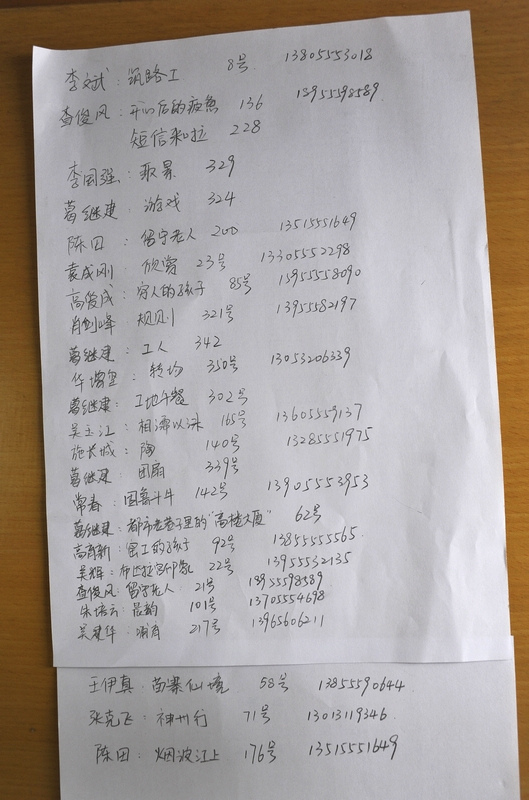 李文斌：筑路工 8号 13805553018
查俊风：开心后的疲惫 136 18955598589
短信和拉 228
李国强：取景 329
葛继建：游戏 324
陈田：留守老人 200 13515551649
袁成刚 欣赏 23号 13305552298
高俊成：穷人的孩子 85号 15955558090
肖剑峰：规则 321号 13955582197
葛继建：工人 342
华 ：转场 350号 13053206339
葛继建：工地午餐 302号
吴玉江：相濡以沫 165号 13605559137
施长城：陶 140号 13285551975
葛继建：团扇 339号
常春：圈斗牛 142号 13905553953
葛继建：都市老巷子里的"高楼大厦" 62号
高 新：窑工的孩子 92号 13855555565
吴辉：布达拉宫印象 22号 13955532135
查俊风：留守老人：21号 18955598589
朱培云：晨韵 101号 13705554698
吴建华： 217号 13965606211
王伊真：苗寨仙境 58号 13855590644
张克飞：神州行 71号 13013119346
陈田：烟波江上 176号 13515551649